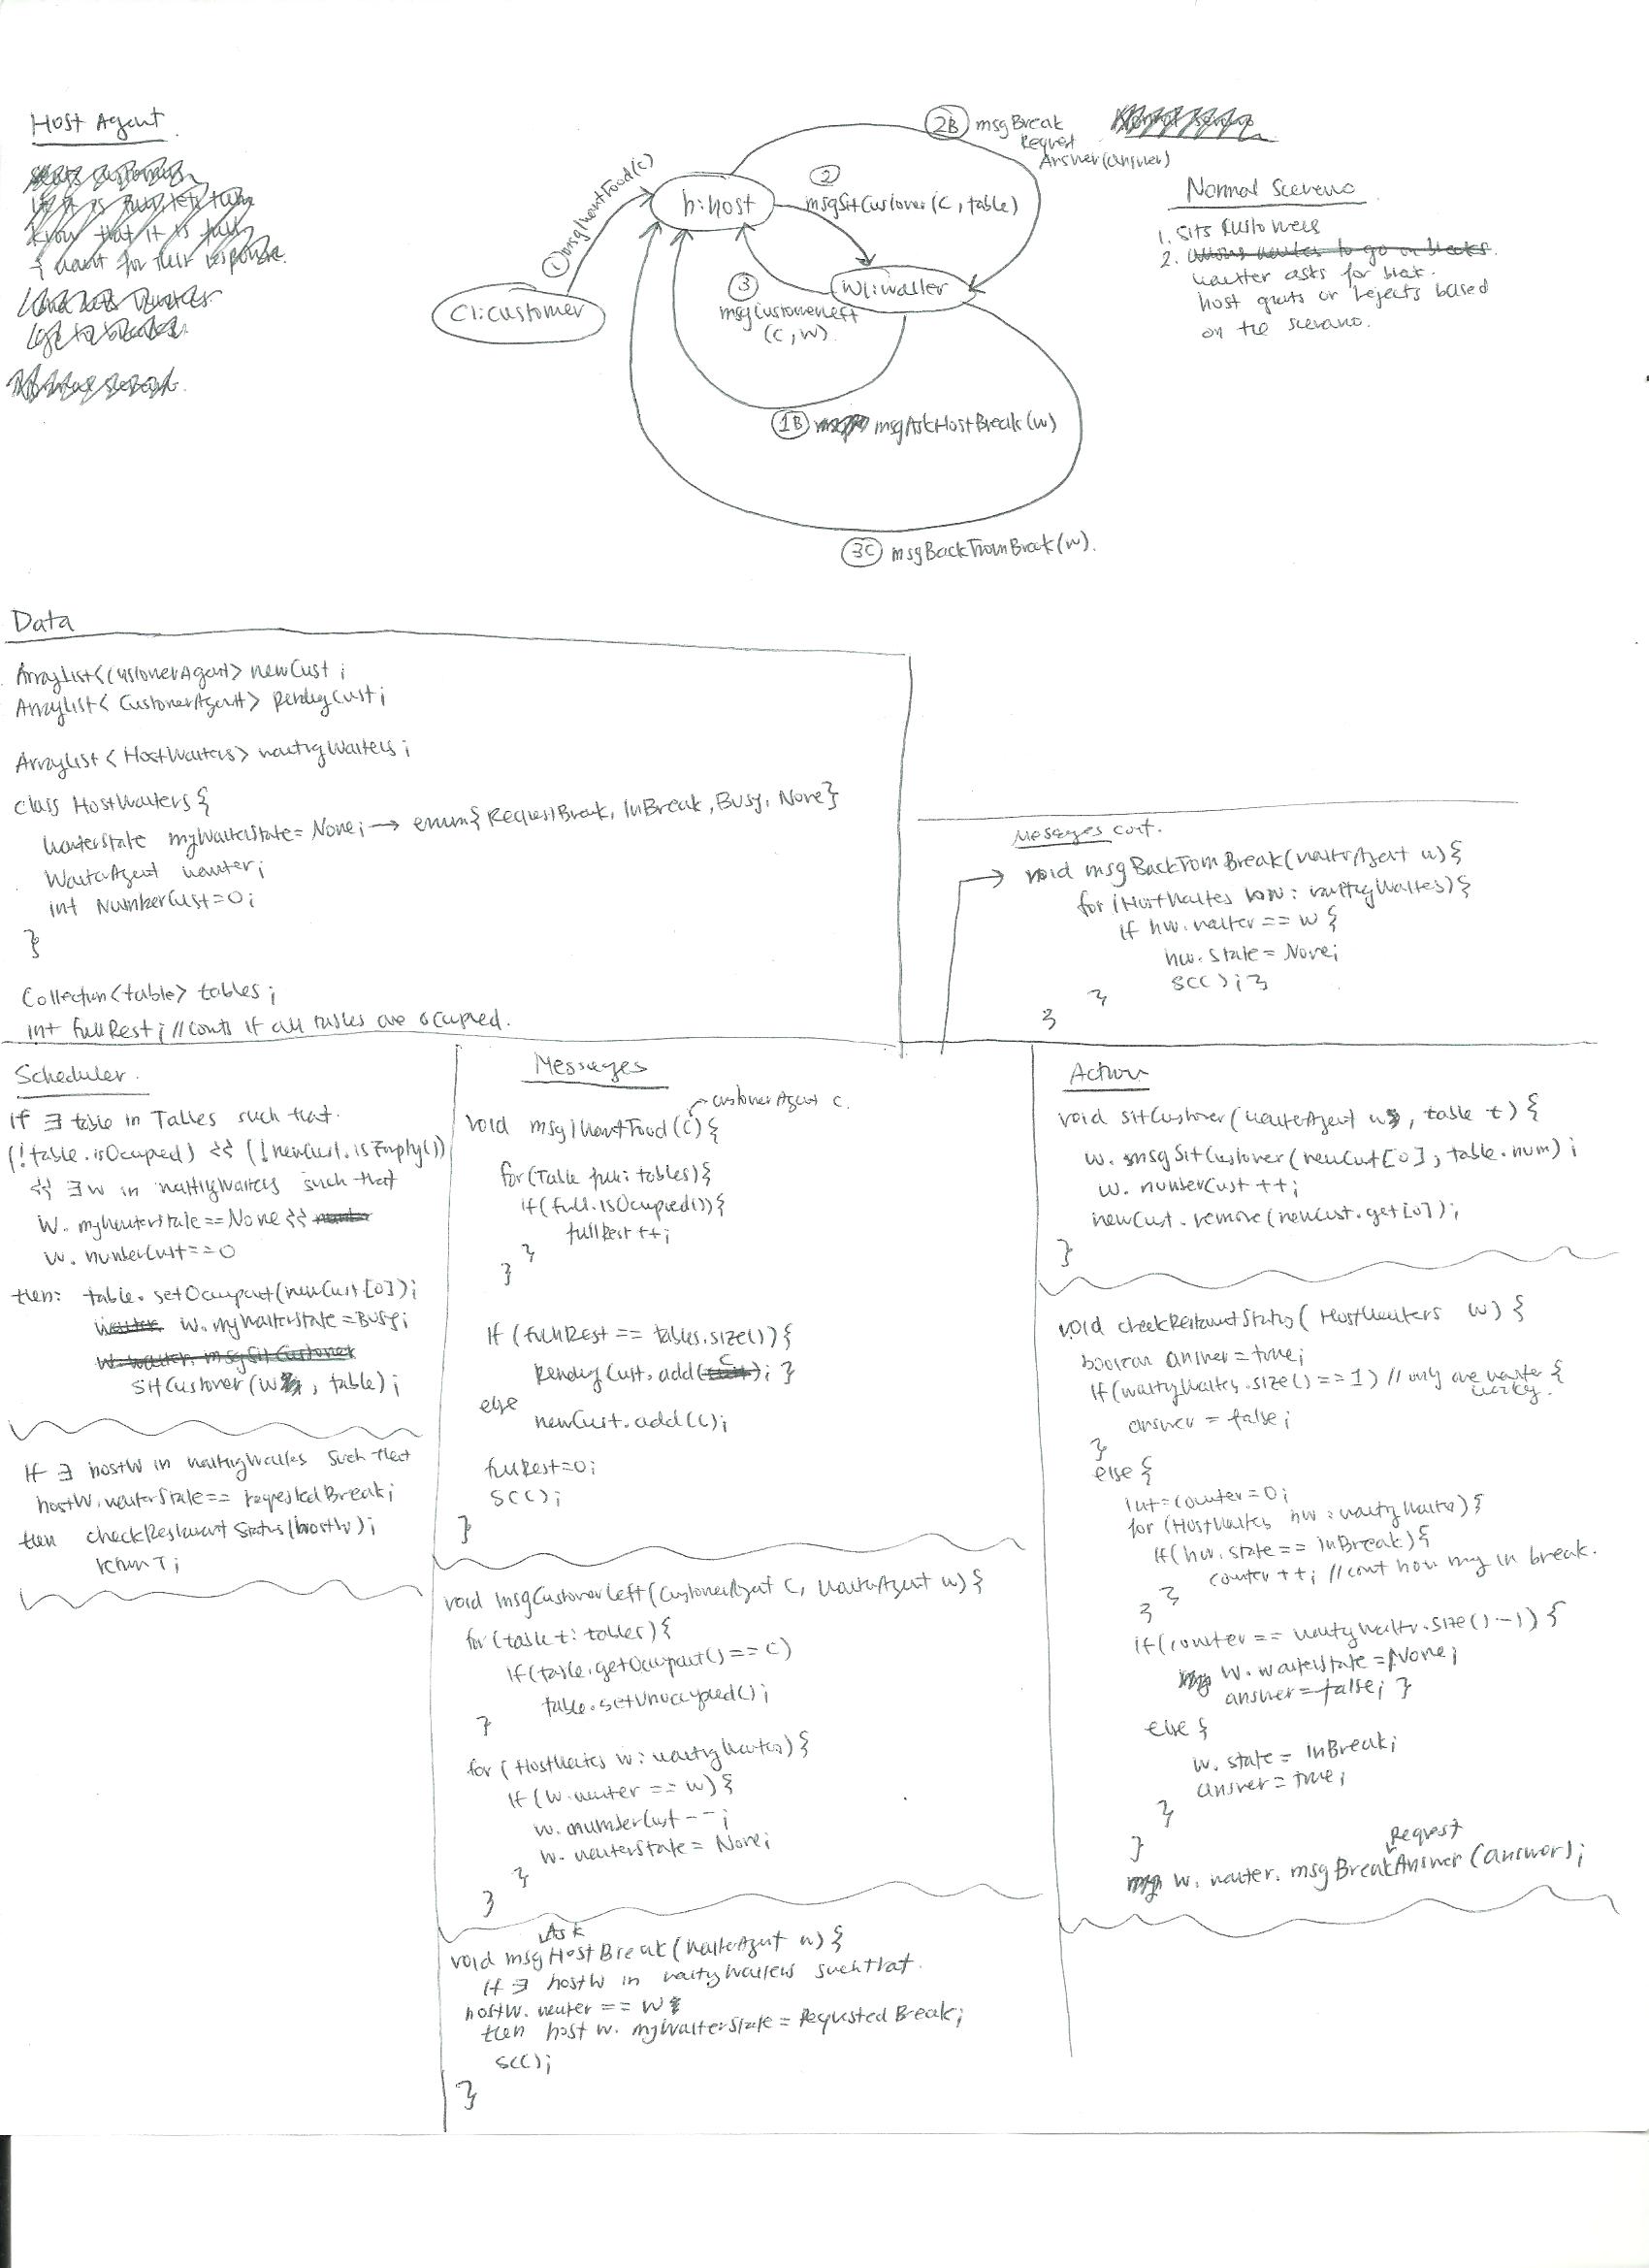 Host Agent
1 msgIWantFood(c)
h:host
2
msgSitCustomer(c, table)
2B msgBreak
Request
Answer(answer)
C1:customer
W1:waiter
3
msgCustomerLeft
(c, w)
1B msgAskHostBreak(w)
3C msgBackFromBreak(w).
Normal Scenerio
1. Sits customers
2. allows waiter to go on breaks.
waiter asks for break.
host grants or rejects based
on the scenario.
Data
ArrayList<CustomerAgent> newCust;
ArrayList<CustomerAgent> pendingCust;
ArrayList<HostWaiters> waitingWaiters;
class HostWaiters{
WaiterState myWaiterState = None; → enum{RequestBreak, InBreak, Busy, None}
WaiterAgent waiter;
int NumberCust=0;
}
Collection<table> tables;
int fullRest; // counts if all tables are occupied.
Messages cont.
void msgBackFromBreak(waiterAgent w){
for (HostWaiters hw: waitingWaiters){
if hw.waiter == w {
hw.state = None;
SCC); }
}
}
Scheduler.
If ∃ table in Tables such that.
(!table.isOccupied) && (!newCust.isEmpty())
&& ∃ w in waitingWaiters such that
w. myWaiterState == None &&
w. numberCust == 0
then: table. setOccupant(newCust[0]);
waiter w.myWaiterState = Busy;
w.waiter. msgSitCustomer
sitCustomer(w, table);
If ∃ hostW in waitingWaiters such that
hostW.waiterState == requestedBreak;
then checkRestaurantStatus(hostW);
return T;
Messages
customerAgent c.
void msgIWantFood(c){
for(Table full: tables){
if(full.isOccupied()){
fullRest++;
}
}
If (fullRest == tables.size()){
pendingCust.add(c); }
else
newCust.add(c);
fullRest=0;
SCC);
}
void msgCustomerLeft(CustomerAgent c, WaiterAgent w){
for(table t: tables){
if(table.getOccupant() == c)
table.setUnoccupied();
}
for (HostWaiters w: waitingWaiters){
if (w.waiter == w) {
w. numberCust--;
w. waiterState = None;
}
}
Ask
void msgHostBreak(WaiterAgent w){
If ∃ hostW in waitingWaiters such that.
hostW. waiter == w
then host w. myWaiterState = RequestedBreak;
SCC);
}
Action
void sitCustomer(waiterAgent w, table t) {
w. msgSitCustomer(newCust[0], table.num);
w. numberCust++;
newCust.remove(newCust.get[0]);
}
void checkRestaurantStatus(HostWaiters w) {
boolean answer = true;
if(waitingWaiters.size() == 1) // only one waiter {
working.
answer = false;
}
else {
int = counter = 0;
for (HostWaiters hw: waitingWaiters){
if(hw.state == InBreak){
counter++; // count how many in break.
}
}
if(counter == waitingWaiters.size()-1) {
w. waiterState = None;
answer = false; }
else {
w. state = InBreak;
answer = true;
}
}
Request
w. waiter. msgBreakAnswer(answer);